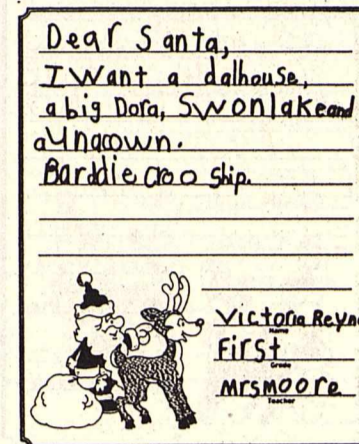 Dear Santa,
I Want a dalhouse,
a big Dora, Swonlake and
a Unqcown.
Barddie croo ship.
Victoria Reyn
Name
First
Grade
Mrsmoore
Teacher